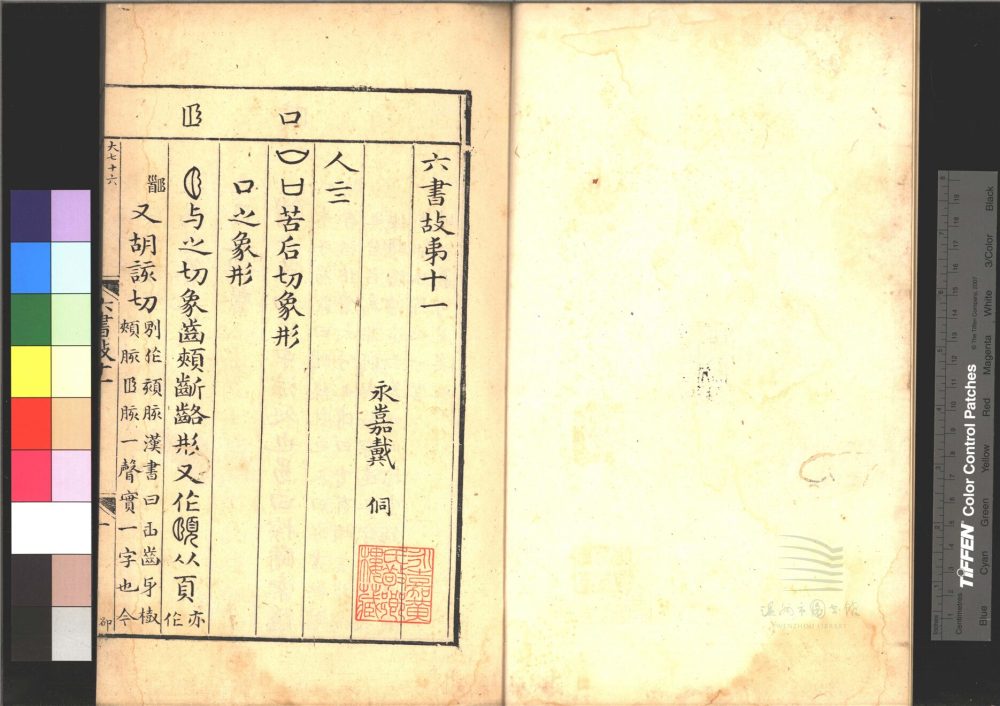 口
𦣞
六書故弟十一
永嘉戴 侗
人三
口苦后切象形
口之象形
与之切象齒頰齗齶形又作頤从頁
亦作
又胡該切
別作頦脄漢書曰𦣞齒牙樹
頰脄𦣞脄一聲實一字也今
大七十六
六書故十一
一
TIFFEN Color Control Patches
© The Tiffen Company, 2007
Centimetres
Inches
Blue
Cyan
Green
Yellow
Red
Magenta
White
3/Color
Black
WENZHOU LIBRARY